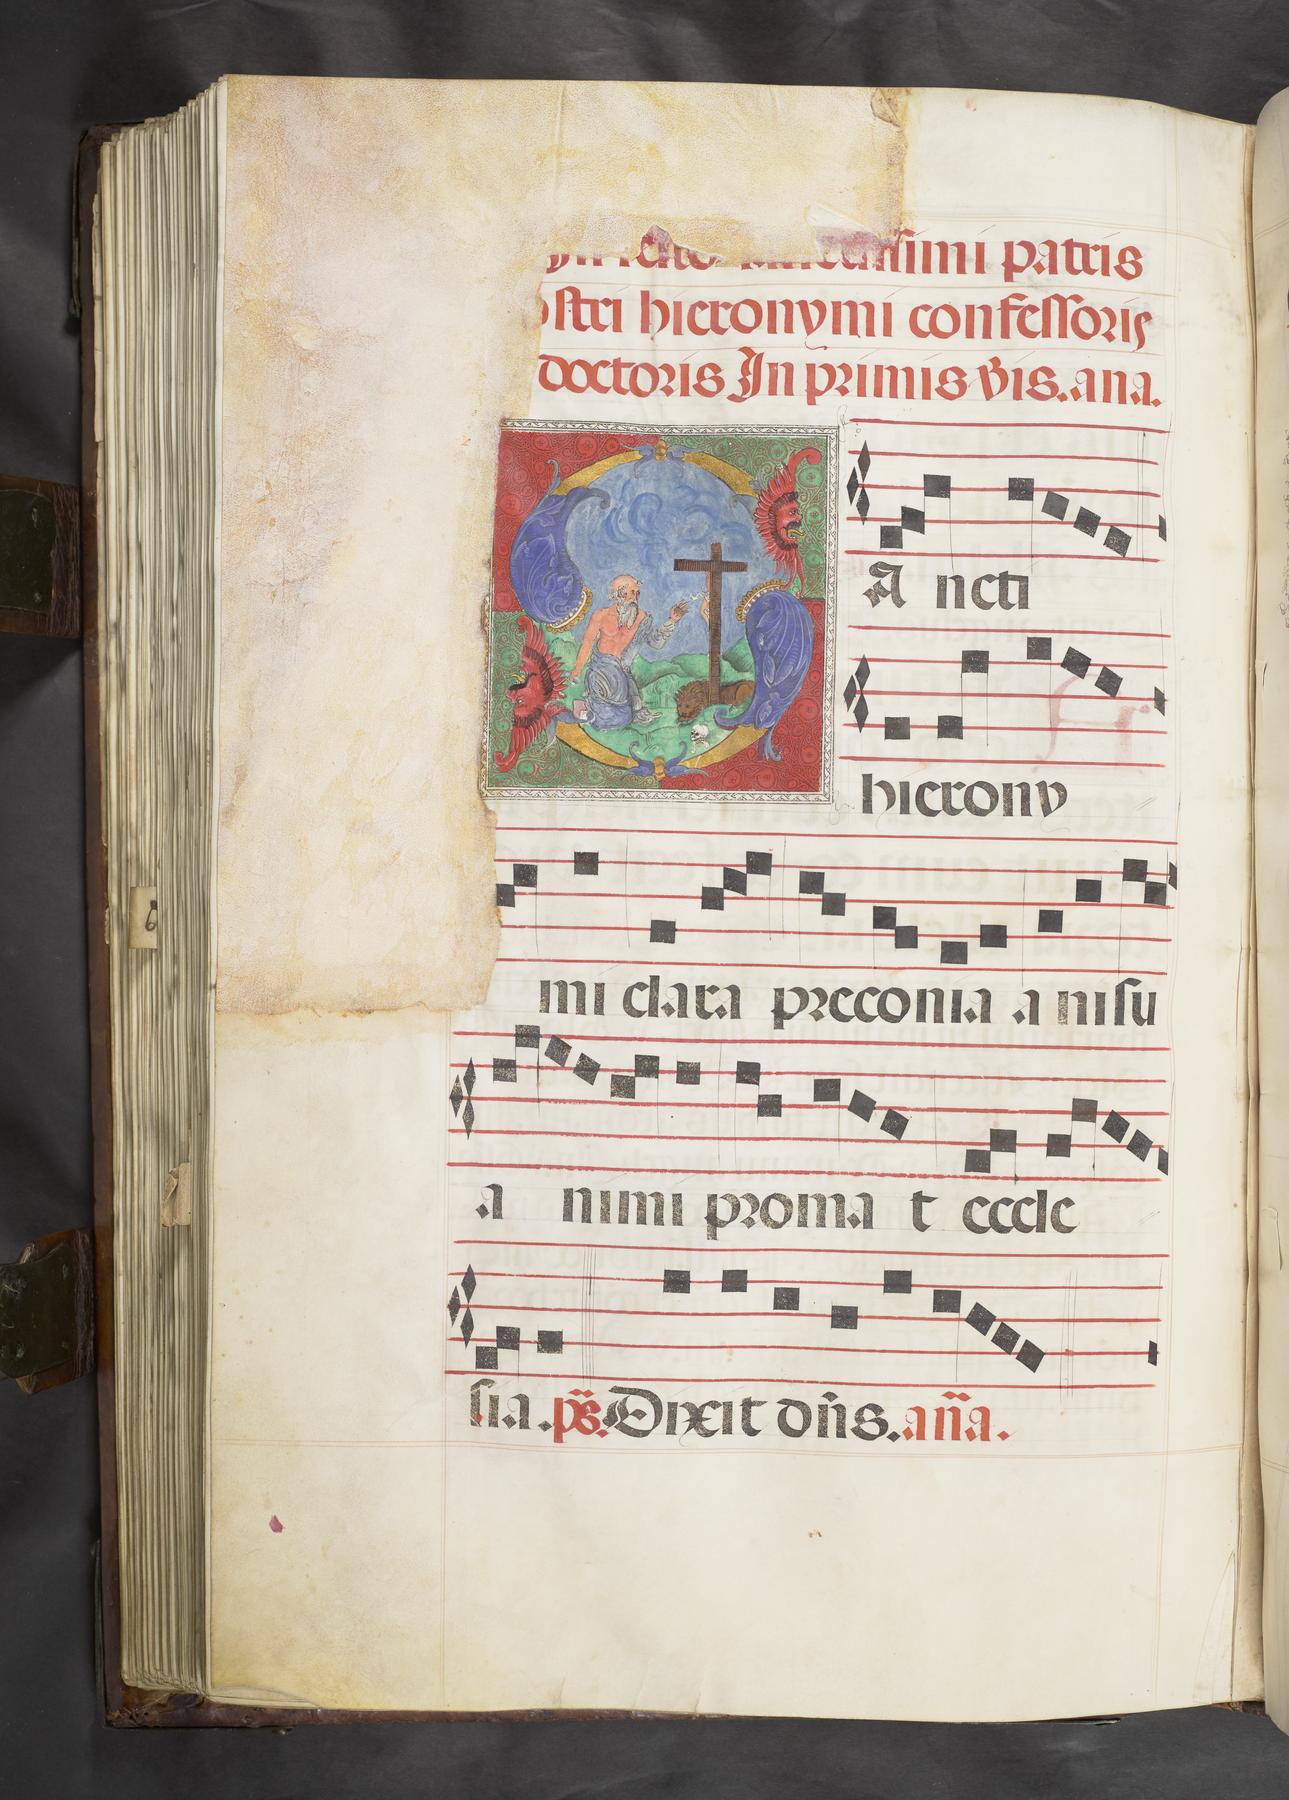 simi patris
ostri hieronymi confessoris
doctoris In primis v̄is. ana.
SA ncti
hierony
mi clara preconia a nisu
a nimi proma t eccle
sia. ps̄. Dixit dn̄s. an̄a.
6